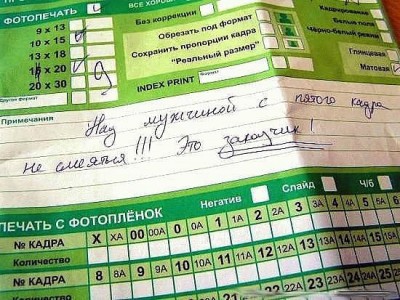 ФОТОПЕЧАТЬ
ВСЕ ХОРОШ
9 x 13
10 x 15
13 x 18
15 x 20
20 x 30
Другой формат:
Без коррекции
Обрезать под формат
Сохранить пропорции кадра
"Реальный размер"
INDEX PRINT
Кадрирование
Белые поля
Черно-белый режим
Глянцевая
Матовая
Примечания
Над мужчиной с пятого кадра
не смеяться!!! Это заказчик!
ПЕЧАТЬ С ФОТОПЛЁНОК
Негатив
Слайд
Ч/б
№ КАДРА X XA 00 00A 0 0A 1 1A 2 2A 3 3A 4 4A 5 5A 6
Количество
№ КАДРА 8 8A 9 9A 10 10A 11 11A 12 12A 13 13A 14 14A
Количество
21 22 22A 23 23A 24 24A 25 25A